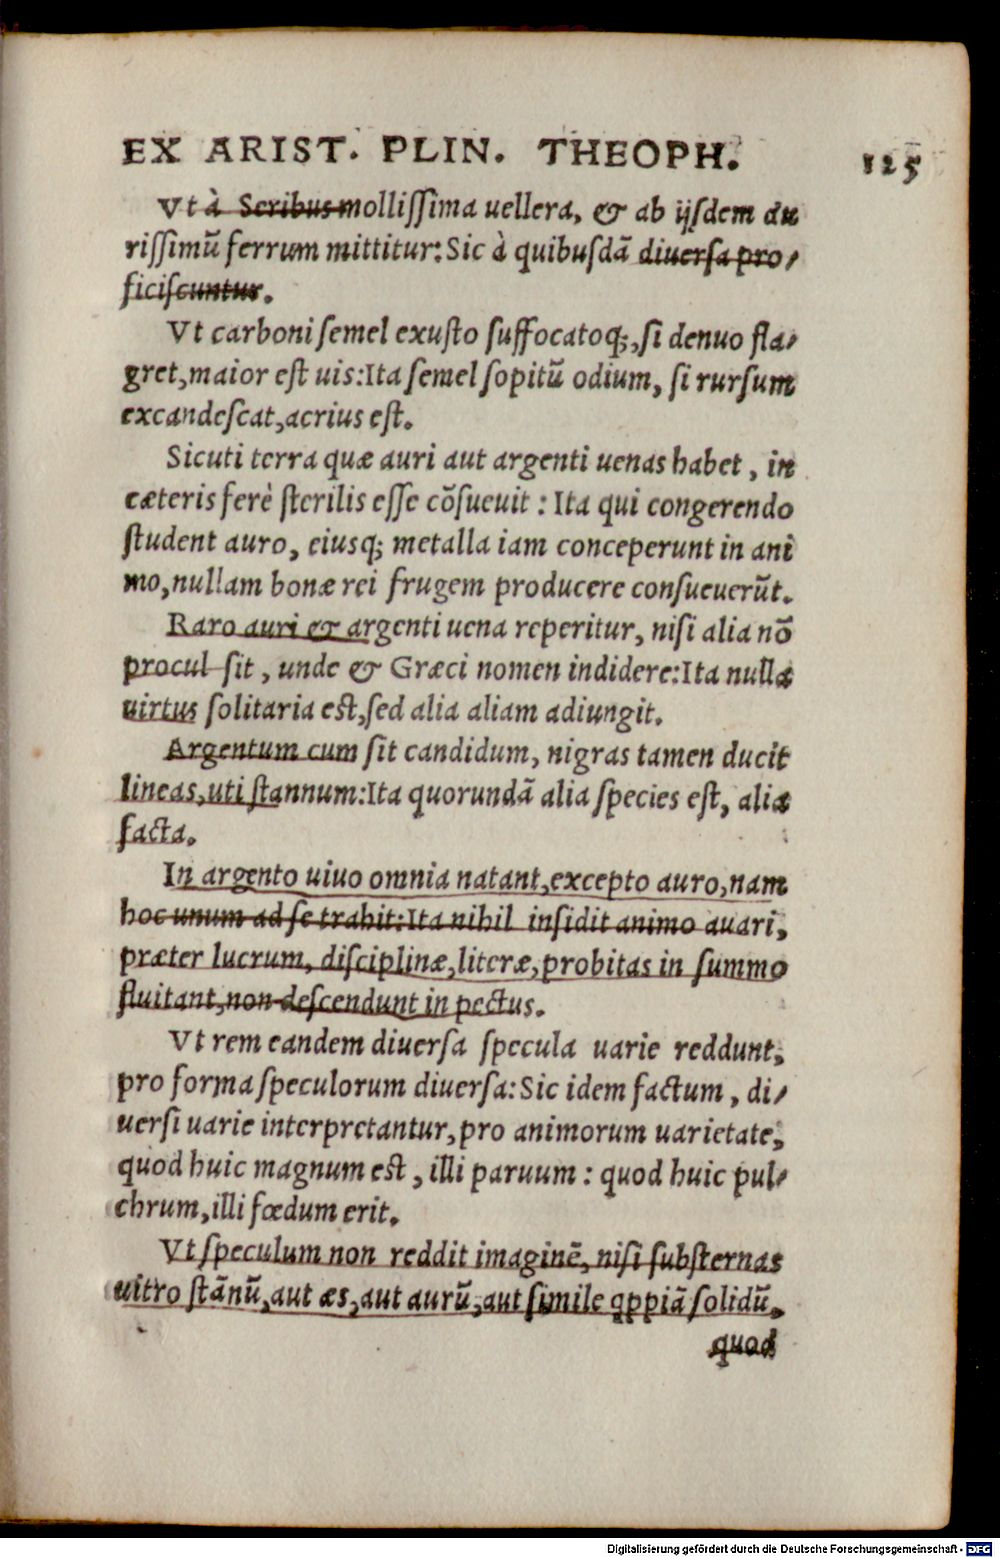 EX ARIST. PLIN. THEOPH. 125
Vt à Seribus mollissima uellera, & ab ijsdem du
rissimũ ferrum mittitur: Sic à quibusdã diuersa pro-
ficiscuntur.
Vt carboni semel exusto suffocatoq;, si denuo fla-
gret, maior est uis: Ita semel sopitũ odium, si rursum
excandescat, acrius est.
Sicuti terra quæ auri aut argenti uenas habet, in
cæteris ferè sterilis esse cõsueuit: Ita qui congerendo
student auro, eiusq; metalla iam conceperunt in ani
mo, nullam bonæ rei frugem producere consueuerũt.
Raro auri & argenti uena reperitur, nisi alia nõ
procul sit, unde & Græci nomen indidere: Ita nulla
uirtus solitaria est, sed alia aliam adiungit.
Argentum cum sit candidum, nigras tamen ducit
lineas, uti stannum: Ita quorundã alia species est, alia
facta.
In argento uiuo omnia natant, excepto auro, nam
hoc unum ad se trahit: Ita nihil insidit animo auari,
præter lucrum, disciplinæ, literæ, probitas in summo
fluitant, non descendunt in pectus.
Vt rem eandem diuersa specula uarie reddunt,
pro forma speculorum diuersa: Sic idem factum, di-
uersi uarie interpretantur, pro animorum uarietate,
quod huic magnum est, illi paruum: quod huic pul-
chrum, illi fœdum erit.
Vt speculum non reddit imaginẽ, nisi substernas
uitro stãnũ, aut æs, aut aurũ, aut simile qppiã solidũ,
quod
Digitalisierung gefördert durch die Deutsche Forschungsgemeinschaft - DFG